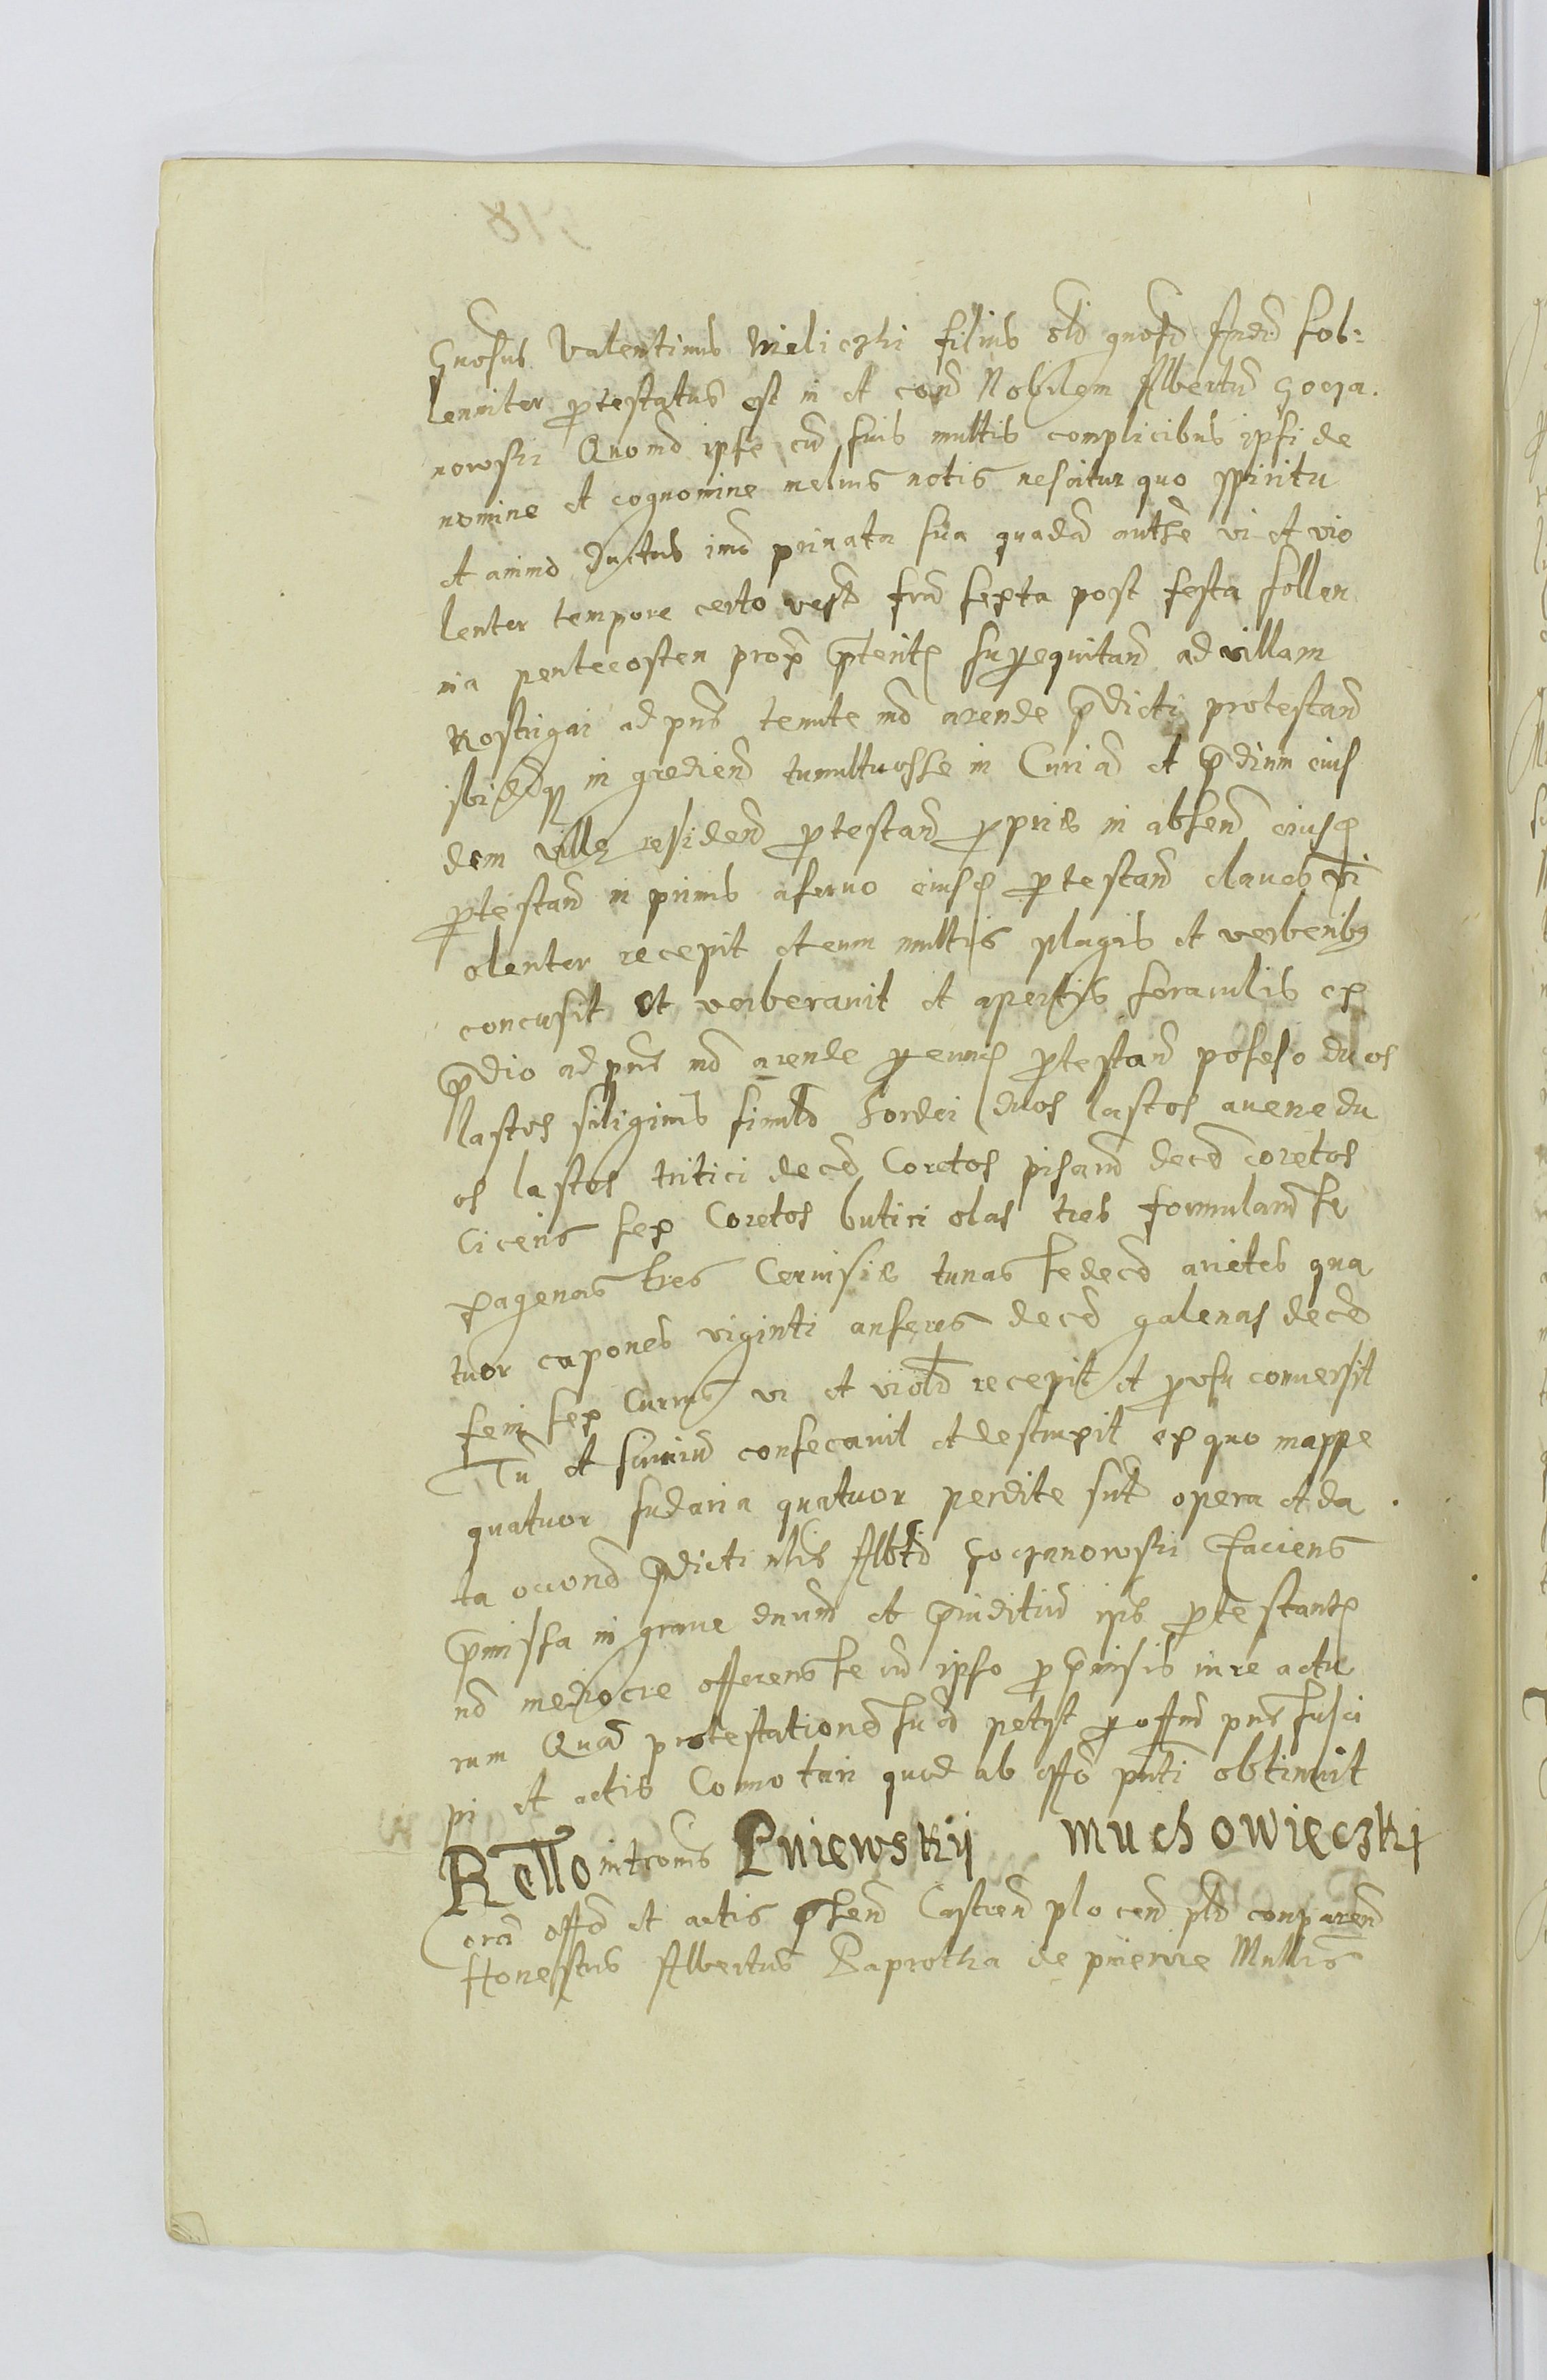 Gnosus Valentinus Mieliczki filius old gnosd Andrd sol:
lenniter protestatus est in et cond Nobilem Albertum Gocza.
nowski Quomo ipse cu suis multis complicibus ipsi de
nomine et cognomine melius notis nescitur quo spiritu
et animo ductus imo privata sua quada authe vi et vio
lenter tempore certo vesto fria sexta post festa sollen
nia pentecosten prox preterit superequitan ad villam
Rostrigai ad pns tenute mo arende predicti protestan
ibidemq in gredien tumultuosse in Curia et predium eius
dem ville residen protestan proprie in absen eiusd
protestan in primis a servo eiusd protestan claves vi
olenter recepit et eum multis plagis et verberibq
concusit et verberavit et apertis foraculis ex
predio ad pns mo arende per eund protestan poseso duos
lastos siliginis similr hordei duos lastos avene du
os lastos tritici dece Coretos pisaru dece coretos
Ciceris sex Coretos butiri olas tres formularu se
xagenas tres Cervisie tunas sedece arietes qua
tuor capones viginti anseres dece galenas dece
feni sex Currus vi et violr recepit et pro usu conversit
Tu et scriniu consecavit et destruxit ex quo mappe
quatuor sudaria quatuor perdite sut opera et da
ta occone predicti nlis Albti Goczanowski Faciens
premissa in grave dnum et preiuditiu ips protestantis
no mediocre offerens se cu ipso pro premisis iure actu
rum Qua protestatione sua petyt per offm pns susci
pi et actis Connotari quod ab offo pnti obtinuit
Rello intromis Pniewskij Muchowieczkj
Cora offo et actis presen Castren plocen psd comparen
Honestus Albertus Paprotka de pniewe Mullis